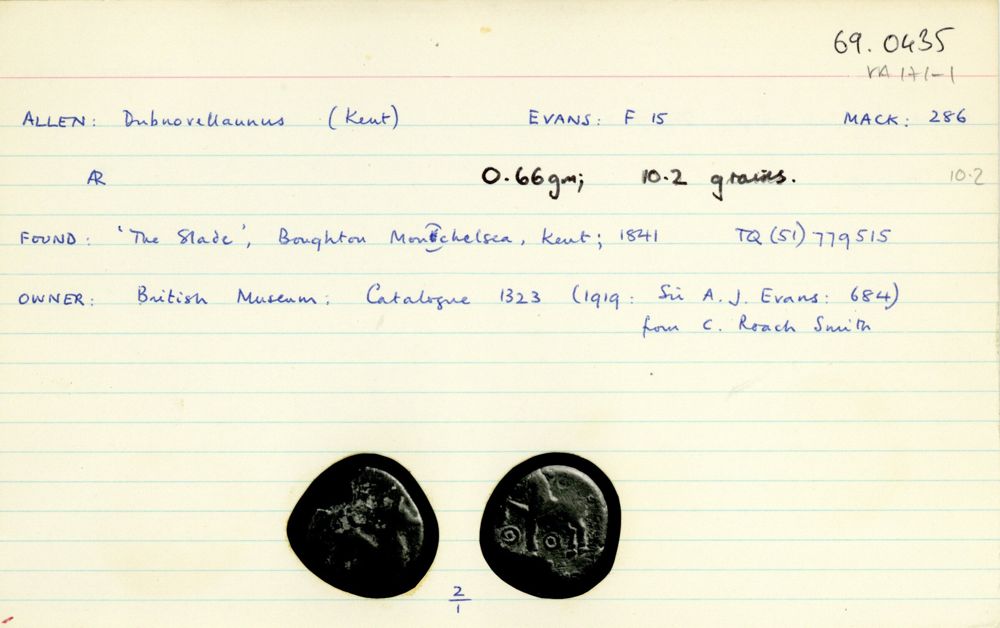 69.0435
VA 171-1
ALLEN: Dubnovellaunus (Kent) EVANS: F 15 MACK: 286
AR 0.66gm; 10.2 grains. 10.2
FOUND: 'The Slade', Boughton Monchelsea, Kent; 1841 TQ (51) 779515
OWNER: British Museum: Catalogue 1323 (1919: Sir A. J. Evans: 684)
from C. Roach Smith
2
1